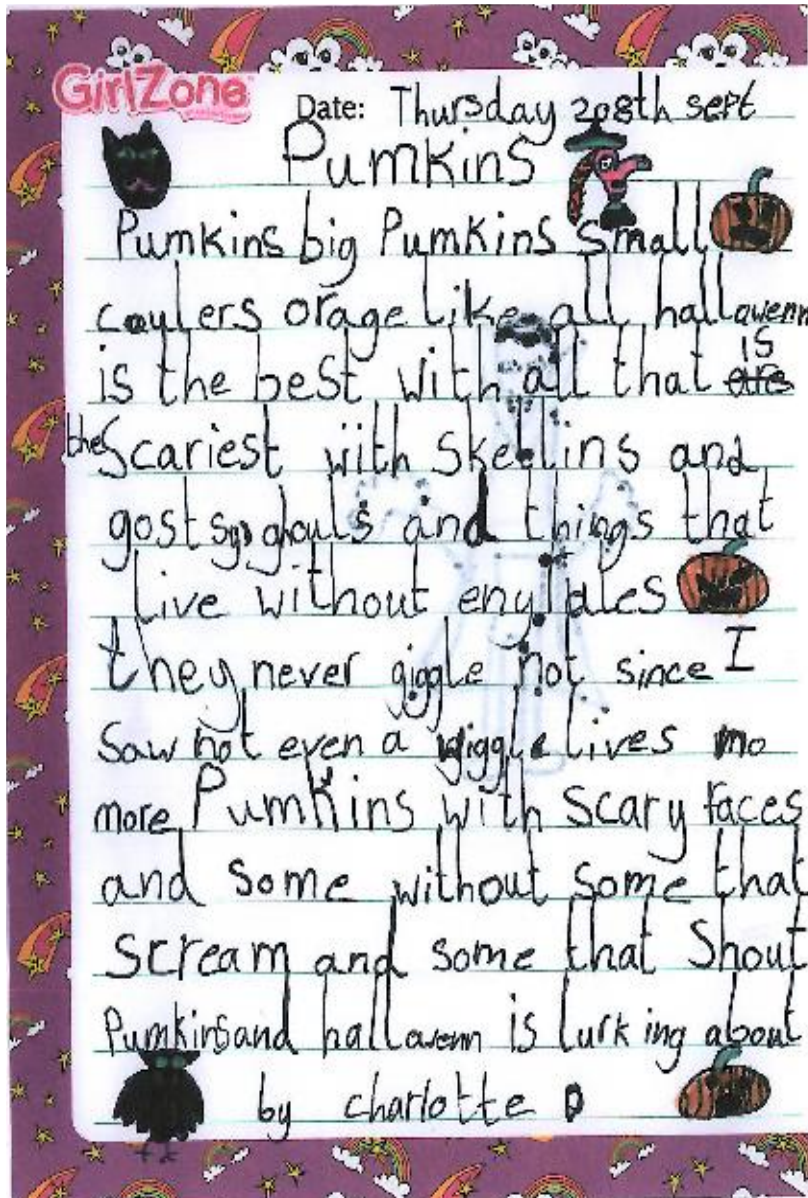 GirlZone
Date: Thursday 208th sept
Pumkins
Pumkins big Pumkins small
coulers orage like all hallawenn
is the best with all that is
the Scariest with skeelins and
gost ghouls and things that
live without eny ales
they never giggle not since I
saw not even a wiggle lives mo
more Pumkins with scary faces
and some without some that
scream and some that Shout
Pumkins and hallawenn is lurking about
by charlotte D